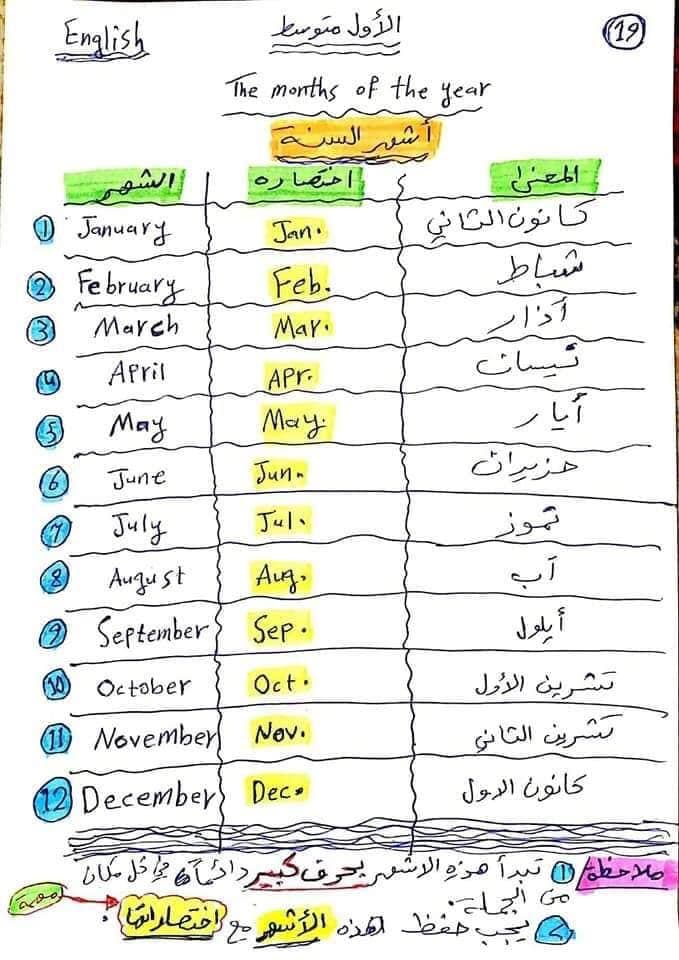 English الأول متوسط 19
The months of the year
أشهر السنة
الشهر اختصاره المعنى
1 January Jan. كانون الثاني
2 February Feb. شباط
3 March Mar. أذار
4 April Apr. نيسان
5 May May. أيار
6 June Jun. حزيران
7 July Jul. تموز
8 August Aug. آب
9 September Sep. أيلول
10 October Oct. تشرين الأول
11 November Nov. تشرين الثاني
12 December Dec. كانون الاول
ملاحظة 1 تبدأ هذهِ الاشهر بحرف كبير دائماً في كل مكان
من الجملة.
2 يجب حفظ هذه الأشهر مع اختصاراتها. مهمة